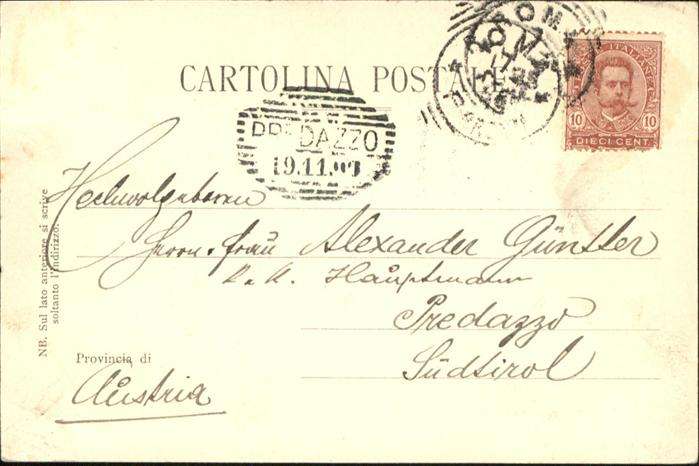 ROMA
POSTE ITALIANE
CARTOLINA POSTALE
10 10
DIECI CENT.
PREDAZZO
19.11.93
Hochwolgeboren
Herrn u. Frau Alexander Günther
K. u. K. Hauptmann
Predazzo
Südtirol
NB. Sul lato anteriore si scrive
soltanto l'indirizzo.
Provincia di
Austria